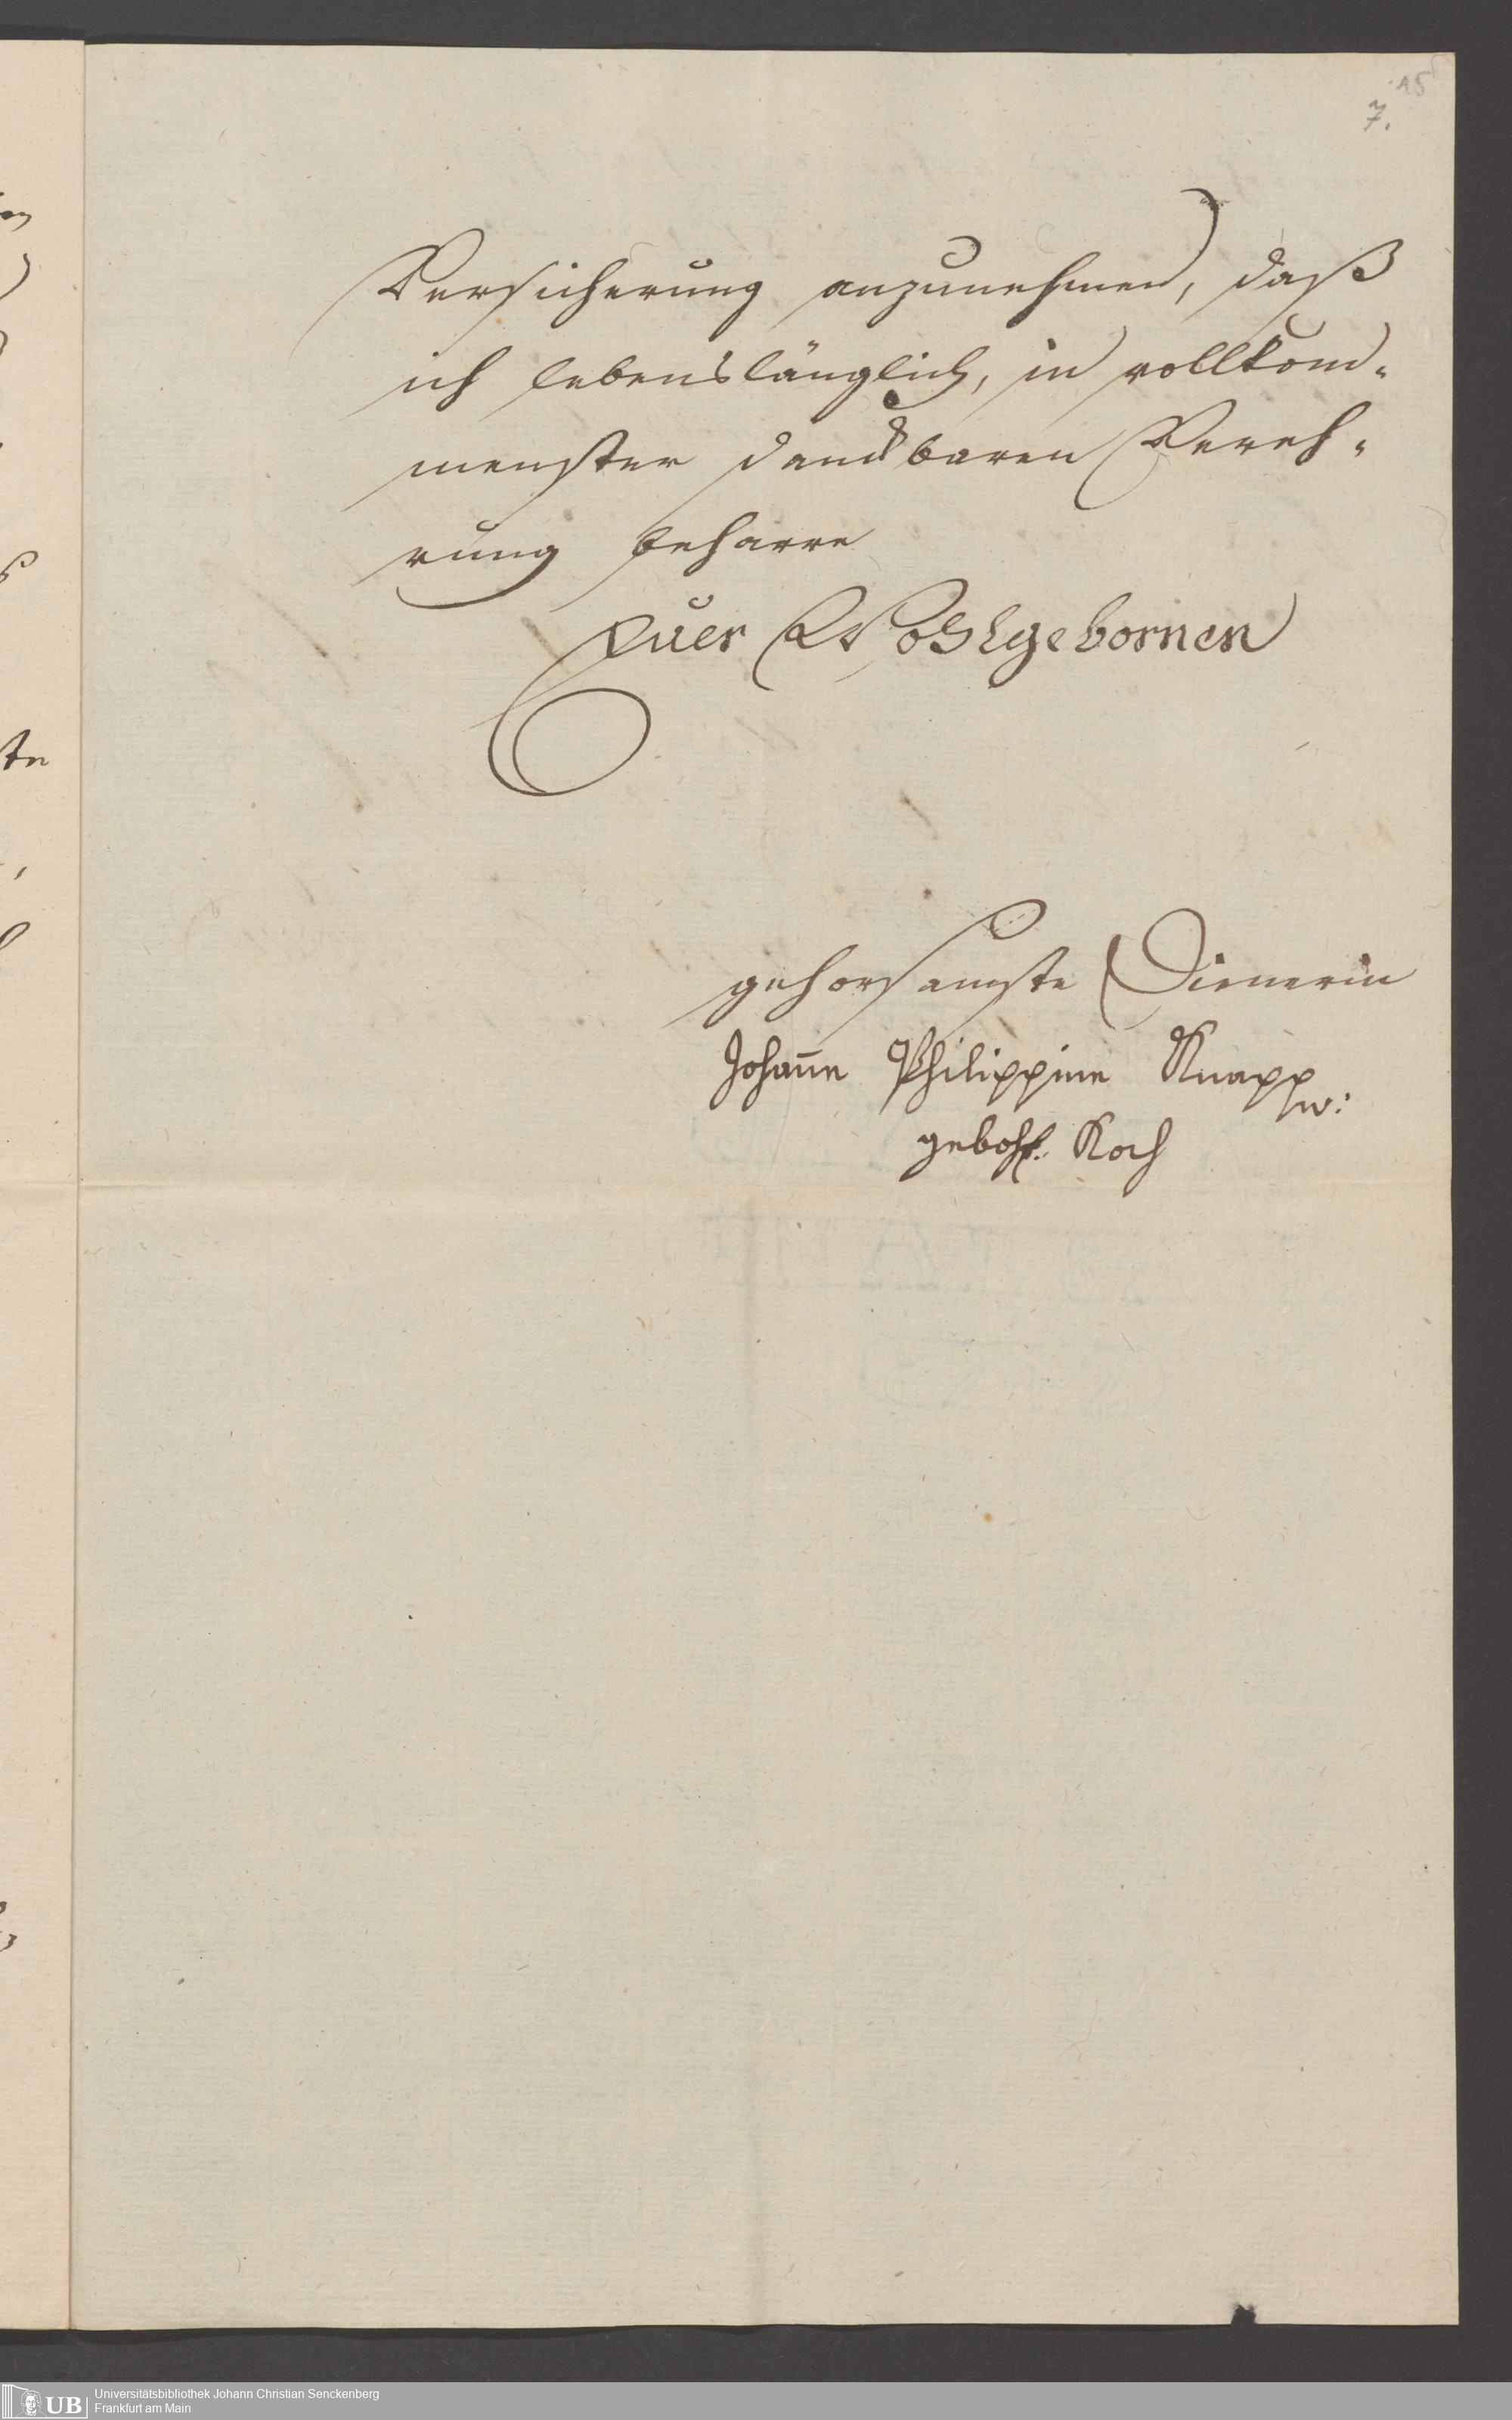 15
7.
Versicherung anzunehmen, daß
ich lebenslänglich, in vollkom-
menster dankbaren Vereh-
rung beharre
Euer Wohlgebornen
gehorsamste Dienerin
Johan̄e Philippine Knapp
w:
gebohr. Koch
UB
Universitätsbibliothek Johann Christian Senckenberg
Frankfurt am Main